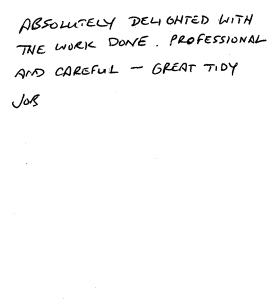 ABSOLUTELY DELIGHTED WITH
THE WORK DONE. PROFESSIONAL
AND CAREFUL – GREAT TIDY
JOB